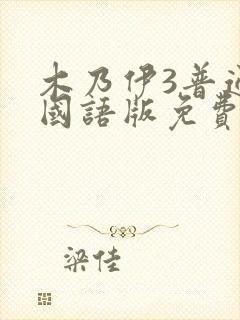 木乃伊3普通
國語版免費
梁佳